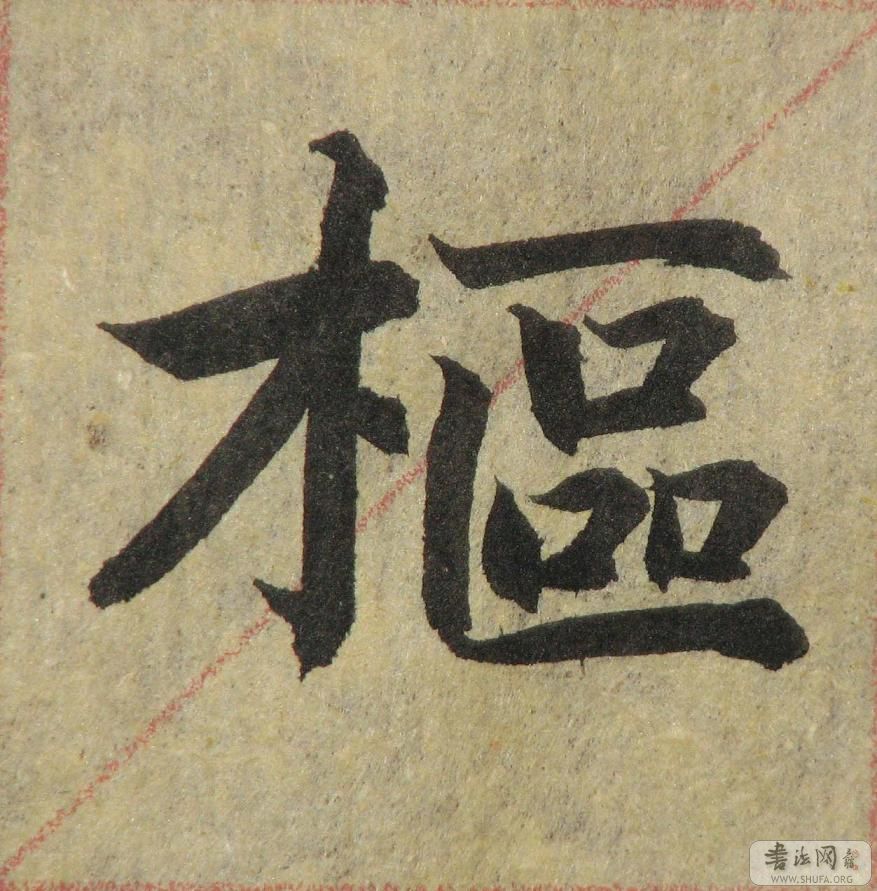 樞
書法网
WWW.SHUFA.ORG